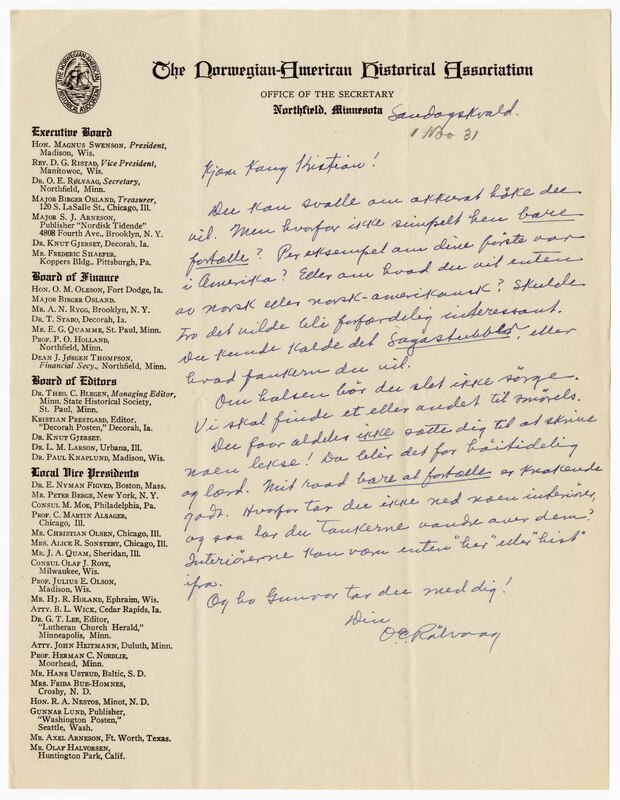 THE NORWEGIAN-AMERICAN HISTORICAL ASSOCIATION
The Norwegian-American Historical Association
OFFICE OF THE SECRETARY
Northfield, Minnesota
Søndagskvæld.
1 Nov 31
Executive Board
HON. MAGNUS SWENSON, President,
Madison, Wis.
REV. D. G. RISTAD, Vice President,
Manitowoc, Wis.
DR. O. E. RØLVAAG, Secretary,
Northfield, Minn.
MAJOR BIRGER OSLAND, Treasurer,
120 S. LaSalle St., Chicago, Ill.
MAJOR S. J. ARNESON,
Publisher "Nordisk Tidende"
4808 Fourth Ave., Brooklyn, N. Y.
DR. KNUT GJERSET, Decorah, Ia.
MR. FREDERIC SHAEFER,
Koppers Bldg., Pittsburgh, Pa.
Board of Finance
HON. O. M. OLESON, Fort Dodge, Ia.
MAJOR BIRGER OSLAND.
MR. A. N. RYGG, Brooklyn, N. Y.
DR. T. STABO, Decorah, Ia.
MR. E. G. QUAMME, St. Paul, Minn.
PROF. P. O. HOLLAND,
Northfield, Minn.
DEAN J. JØRGEN THOMPSON,
Financial Secy., Northfield, Minn.
Board of Editors
DR. THEO. C. BLEGEN, Managing Editor,
Minn. State Historical Society,
St. Paul, Minn.
KRISTIAN PRESTGARD, Editor.
"Decorah Posten," Decorah, Ia.
DR. KNUT GJERSET.
DR. L. M. LARSON, Urbana, Ill.
DR. PAUL KNAPLUND, Madison, Wis.
Local Vice Presidents
DR. E. NYMAN FIGVED, Boston, Mass.
MR. PETER BERGE, New York, N. Y.
CONSUL M. MOE, Philadelphia, Pa.
PROF. C. MARTIN ALSAGER,
Chicago, Ill.
MR. CHRISTIAN OLSEN, Chicago, Ill.
MRS. ALICE R. SONSTEBY, Chicago, Ill.
MR. J. A. QUAM, Sheridan, Ill.
CONSUL OLAF J. ROVE,
Milwaukee, Wis.
PROF. JULIUS E. OLSON,
Madison, Wis.
MR. HJ. R. HOLAND, Ephraim, Wis.
ATTY. B. L. WICK, Cedar Rapids, Ia.
DR. G. T. LEE, Editor,
"Lutheran Church Herald,"
Minneapolis, Minn.
ATTY. JOHN HEITMANN, Duluth, Minn.
PROF. HERMAN C. NORDLIE,
Moorhead, Minn.
MR. HANS USTRUD, Baltic, S. D.
MRS. FRIDA BUE-HOMNES,
Crosby, N. D.
HON. R. A. NESTOS, Minot, N. D.
GUNNAR LUND, Publisher,
"Washington Posten,"
Seattle, Wash.
MR. AXEL ARNESON, Ft. Worth, Texas.
MR. OLAF HALVORSEN,
Huntington Park, Calif.
Kjære Kong Kristian!
Du kan svalle om akkurat håke du
vil. Men hvorfor ikke simpelt hen bare
fortælle? Per eksempel om dine første aar
i Amerika? Eller om hvad du vil enten
av norsk eller norsk-amerikansk? Skulde
tro det vilde bli forfærdelig interessant.
Du kunde kalde det Sagastubber, eller
hvad fankern du vil.
Om halsen bør du slet ikke sørge.
Vi skal finde et eller andet til smørels.
Du faar aldeles ikke sætte dig til at skrive
noen lekse! Da blir det for høitidelig
og lærd. Mit raad bare at fortælle er knakende
godt. Hvorfor tar du ikke ned noen interiører,
og saa lar du tankerne vandre over dem?
Interiørerne kan være enten "her" eller "hist"
ifra.
Og ho Gunvor tar du med dig!
Din
O E Rølvaag